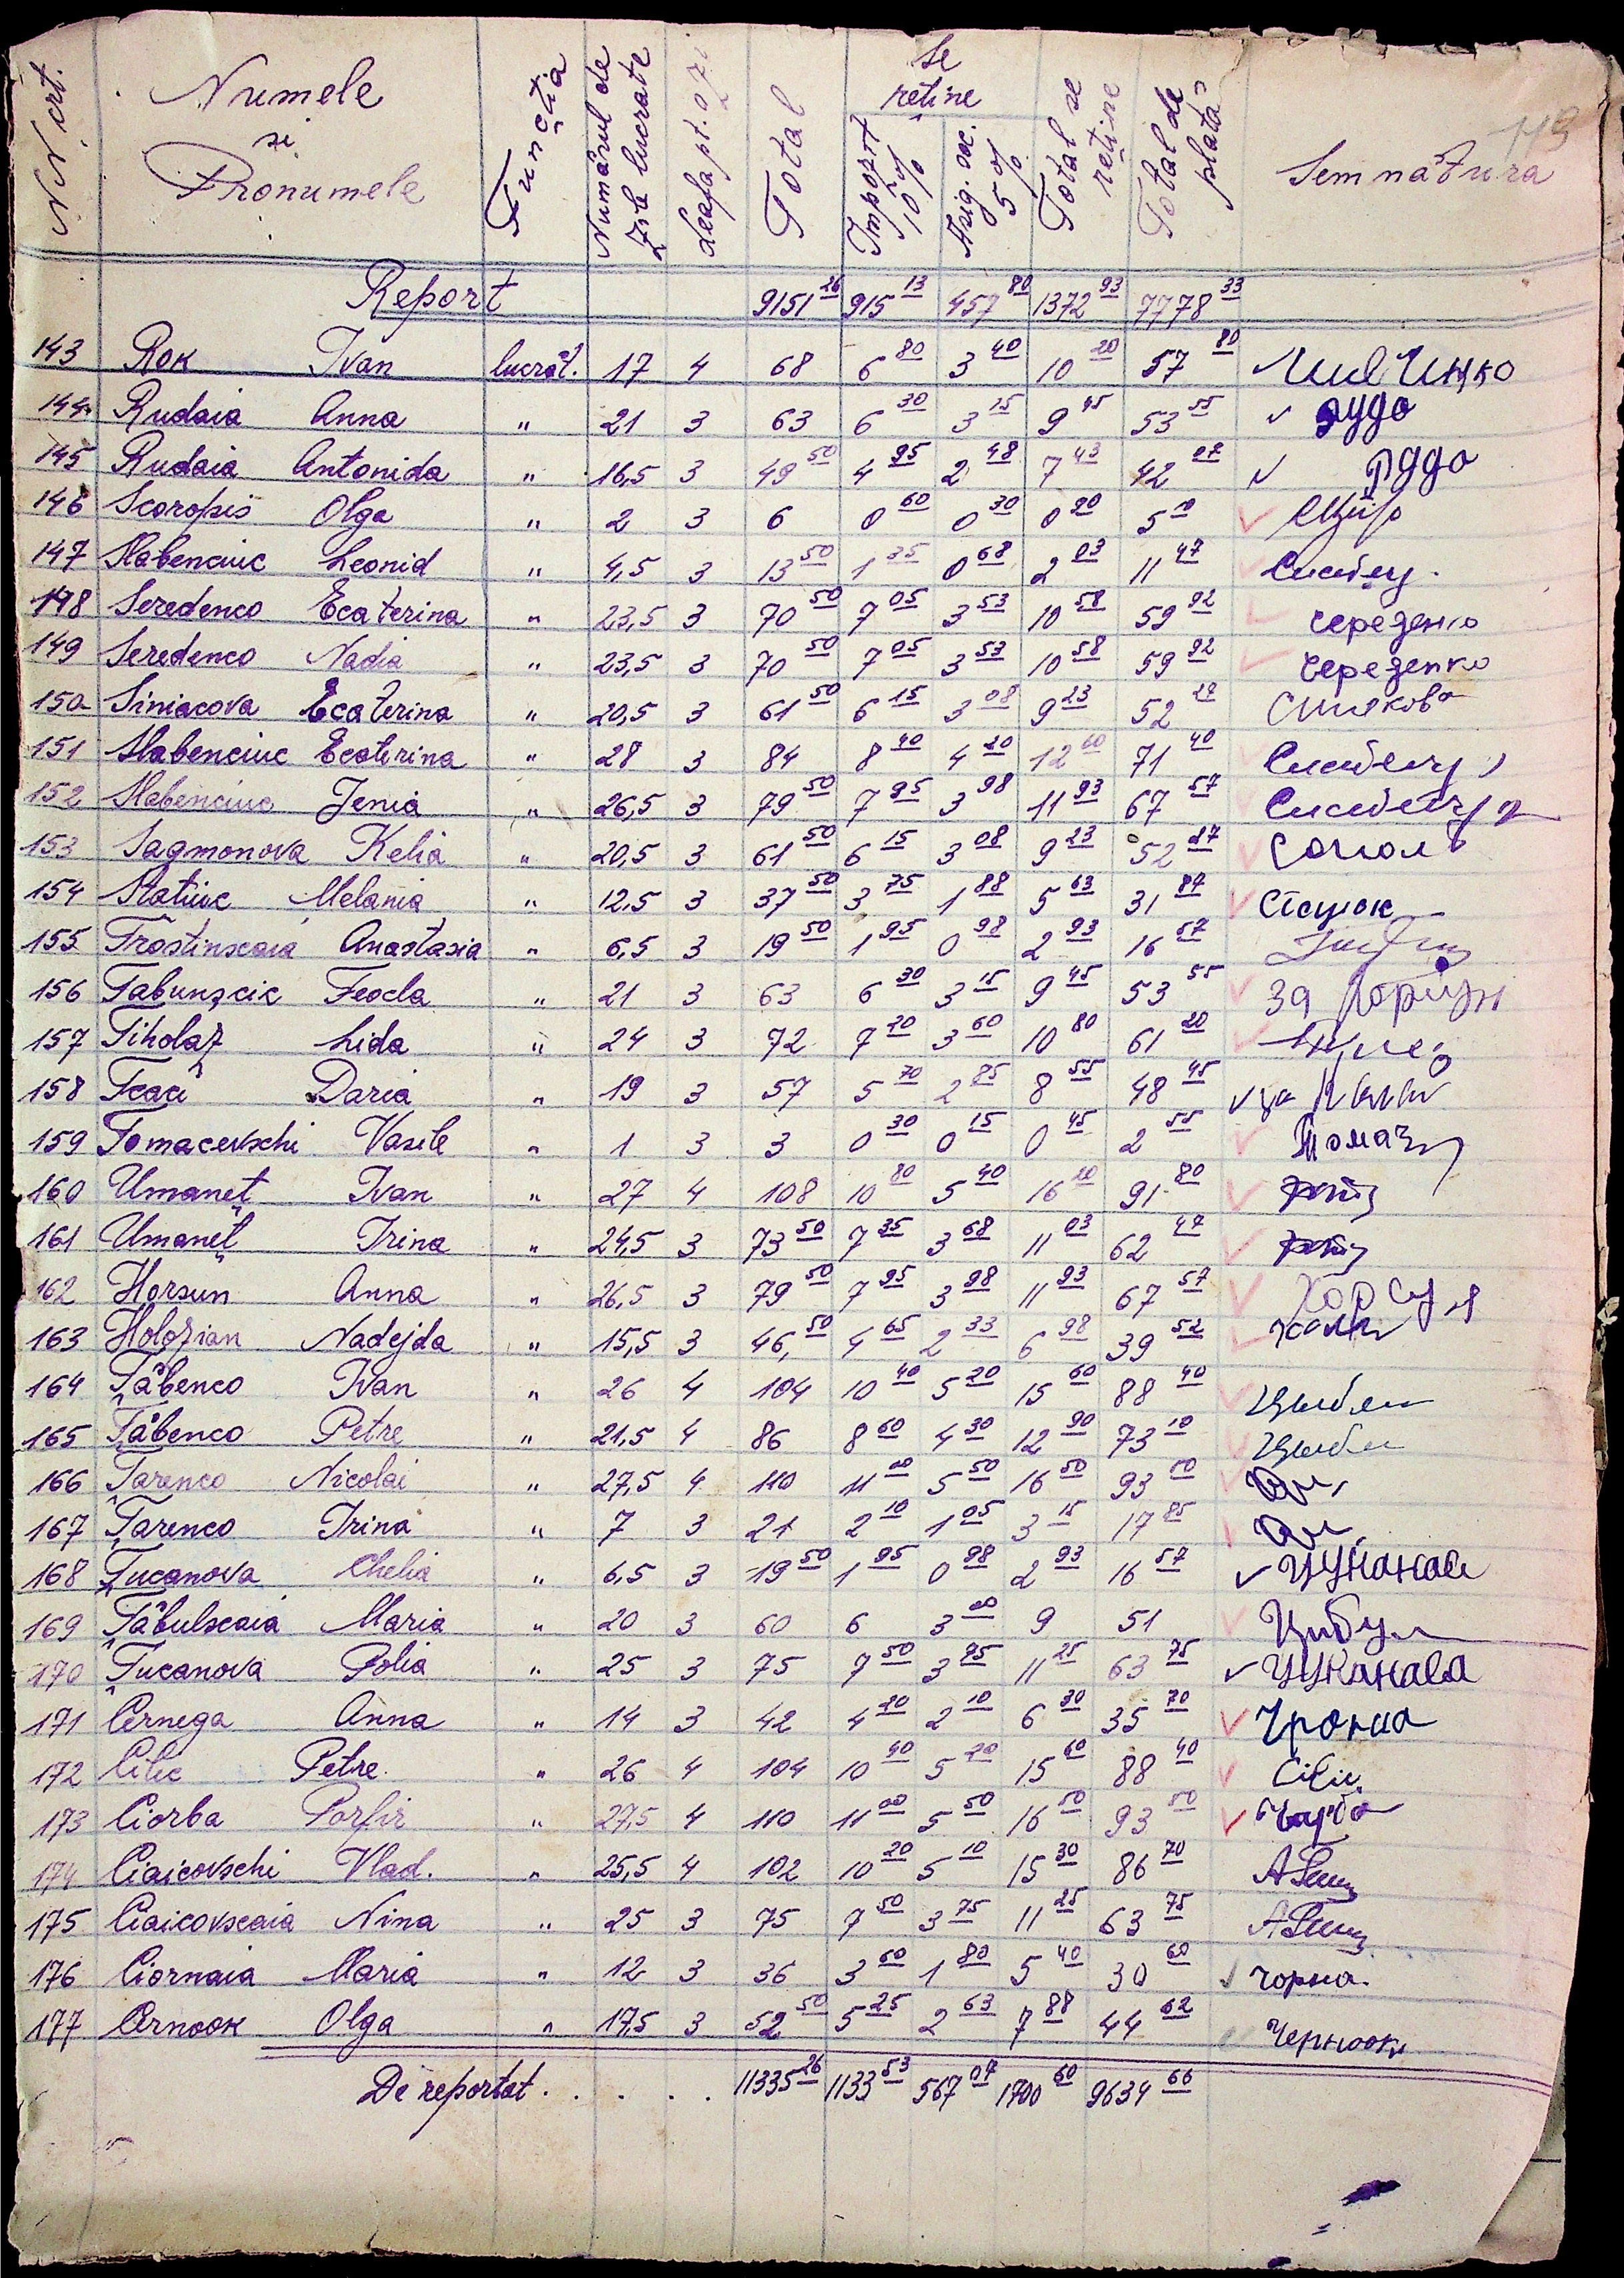 119
NN crt. Numele și Pronumele Funcția Numărul de zile lucrate Leafa pt. o zi Total Se reține Import 10% Asig. soc. 5% Total se reține Total de plată Semnătura
Report 9151 26 915 13 457 80 1372 93 7778 33
143 Rok Ivan lucrăt. 17 4 68 6 80 3 40 10 20 57 80
144 Rudaia Anna " 21 3 63 6 30 3 15 9 45 53 55 рудо
145 Rudaia Antonida " 16,5 3 49 50 4 95 2 48 7 43 42 07
146 Scoropis Olga " 2 3 6 0 60 0 30 0 90 5 10
147 Slabenciuc Leonid " 4,5 3 13 50 1 35 0 68 2 03 11 47
148 Seredenco Ecaterina " 23,5 3 70 50 7 05 3 53 10 58 59 92 середенко
149 Seredenco Nadia " 23,5 3 70 50 7 05 3 53 10 58 59 92 середенко
150 Siniacova Ecaterina " 20,5 3 61 50 6 15 3 08 9 23 52 27 Синякова
151 Slabenciuc Ecaterina " 28 3 84 8 40 4 20 12 60 71 40
152 Slabenciuc Jenia " 26,5 3 79 50 7 95 3 98 11 93 67 57
153 Sagmonova Kelia " 20,5 3 61 50 6 15 3 08 9 23 52 27
154 Statiuc Melania " 12,5 3 37 50 3 75 1 88 5 63 31 87 Стацюк
155 Trostinscaia Anastasia " 6,5 3 19 50 1 95 0 98 2 93 16 57
156 Tabunșcic Feocla " 21 3 63 6 30 3 15 9 45 53 55 За
157 Tiholaz Lida " 24 3 72 7 20 3 60 10 80 61 20
158 Tcaci Daria " 19 3 57 5 70 2 85 8 55 48 45
159 Tomacevschi Vasile " 1 3 3 0 30 0 15 0 45 2 55 Томач
160 Umaneț Ivan " 27 4 108 10 80 5 40 16 20 91 80
161 Umaneț Irina " 24,5 3 73 50 7 35 3 68 11 03 62 47
162 Horsun Anna " 26,5 3 79 50 7 95 3 98 11 93 67 57 Хорсун
163 Holozian Nadejda " 15,5 3 46, 50 4 65 2 33 6 98 39 52
164 Țăbenco Ivan " 26 4 104 10 40 5 20 15 60 88 40
165 Țăbenco Petre " 21,5 4 86 8 60 4 30 12 90 73 10
166 Țarenco Nicolai " 27,5 4 110 11 00 5 50 16 50 93 50
167 Țarenco Irina " 7 3 21 2 10 1 05 3 15 17 85
168 Țucanova Chelia " 6,5 3 19 50 1 95 0 98 2 93 16 57
169 Țăbulscaia Maria " 20 3 60 6 3 00 9 51 Цибул
170 Țucanova Polia " 25 3 75 7 50 3 75 11 25 63 75 Цуканава
171 Cernega Anna " 14 3 42 4 20 2 10 6 30 35 70
172 Cilic Petre " 26 4 104 10 40 5 20 15 60 88 40 Cilic
173 Ciorba Porfir " 27,5 4 110 11 00 5 50 16 50 93 50
174 Ciaicovschi Vlad. " 25,5 4 102 10 20 5 10 15 30 86 70
175 Ciaicovscaia Nina " 25 3 75 7 50 3 75 11 25 63 75
176 Ciornaia Maria " 12 3 36 3 60 1 80 5 40 30 60 чорна
177 Cernook Olga " 17,5 3 52 50 5 25 2 63 7 88 44 62 Чернооки
De reportat . . . . . 11335 26 1133 53 567 07 1700 60 9634 66